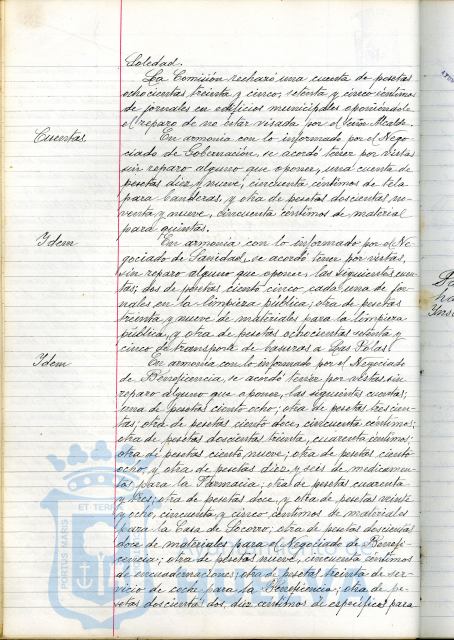 Soledad.
La Comisión rechazó una cuenta de pesetas
ochocientas treinta y cinco, setenta y cinco céntimos
de jornales en edificios municipales oponiéndole
el reparo de no estar visada por el Señor Alcalde.
Cuentas
En armonía con lo informado por el Nego-
ciado de Gobernación, se acordó tener por vistas
sin reparo alguno que oponer, una cuenta de
pesetas diez y nueve, cincuenta céntimos de tela
para banderas, y otra de pesetas doscientas no-
venta y nueve, cincuenta céntimos de material
para quintas.
Idem
En armonía con lo informado por el Ne-
gociado de Sanidad, se acordó tener por vistas,
sin reparo alguno que oponer, las siguientes cuen-
tas; dos de pesetas ciento cinco, cada una de jor-
nales en la limpieza pública; otra de pesetas
treinta y nueve de materiales para la limpieza
pública, y otra de pesetas ochocientas setenta y
cinco de transporte de basuras a Las Palas.
Idem
En armonía con lo informado por el Negociado
de Beneficencia, se acordó tener por vistas sin
reparo alguno que oponer, las siguientes cuentas;
una de pesetas ciento ocho; otra de pesetas trescien-
tas; otra de pesetas ciento doce, cincuenta céntimos;
otra de pesetas doscientas treinta, cuarenta céntimos;
otra de pesetas ciento nueve; otra de pesetas ciento
ocho, y otra de pesetas diez y seis de medicamen-
tos para la Farmacia; otra de pesetas cuarenta
y tres; otra de pesetas doce, y otra de pesetas veinte
y ocho, cincuenta y cinco céntimos de materiales
para la Casa de Socorro; otra de pesetas doscientas
doce de materiales para el Negociado de Benefi-
cencia; otra de pesetas nueve, cincuenta céntimos
de encuadernaciones; otra de pesetas treinta de ser-
vicio de coche para la Beneficencia; otra de pe-
setas doscientas dos, diez céntimos de específicos para
ET TERRA
PORTUS MARIS